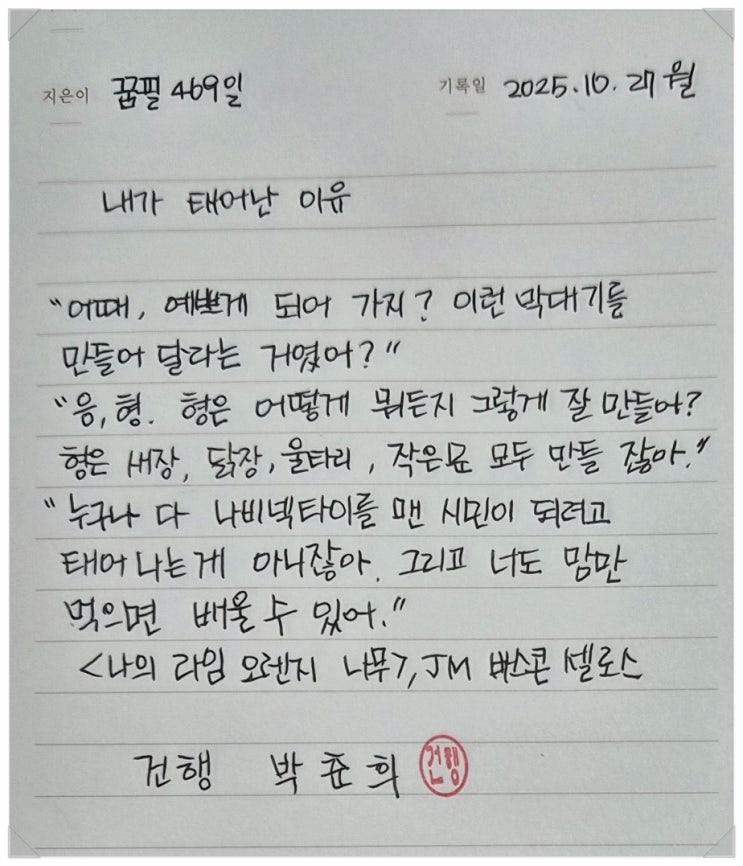 지은이 꿈필 469일
기록일 2025.10.27 월
내가 태어난 이유
"어때, 예쁘게 되어 가지? 이런 막대기를
만들어 달라는 거였어?"
"응, 형. 형은 어떻게 뭐든지 그렇게 잘 만들어?
형은 새장, 닭장, 울타리, 작은문 모두 만들 잖아."
"누구나 다 나비넥타이를 맨 시민이 되려고
태어 나는게 아니잖아. 그리고 너도 맘만
먹으면 배울 수 있어."
<나의 라임 오렌지 나무>, JM 바스콘 셀로스
건행 박춘희
건행